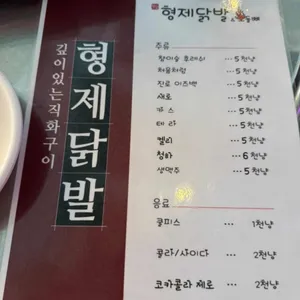 형제닭발
깊이있는직화구이
형제닭발
주류
참이슬 후레쉬 ...5천냥
처음처럼 ...5천냥
진로 이즈백 ...5천냥
새로 ...5천냥
카스 ...5천냥
테라 ...5천냥
켈리 ...5천냥
청하 ...6천냥
생맥주 ...5천냥
음료
쿨피스 ... 1천냥
콜라/사이다 ... 2천냥
코카콜라 제로 ... 2천냥